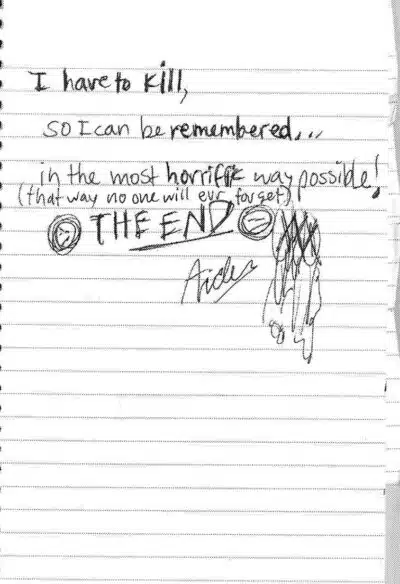 I have to kill,
so I can be remembered...
in the most horriffic way possible!
(that way no one will evr forget)
THE END
Aiden